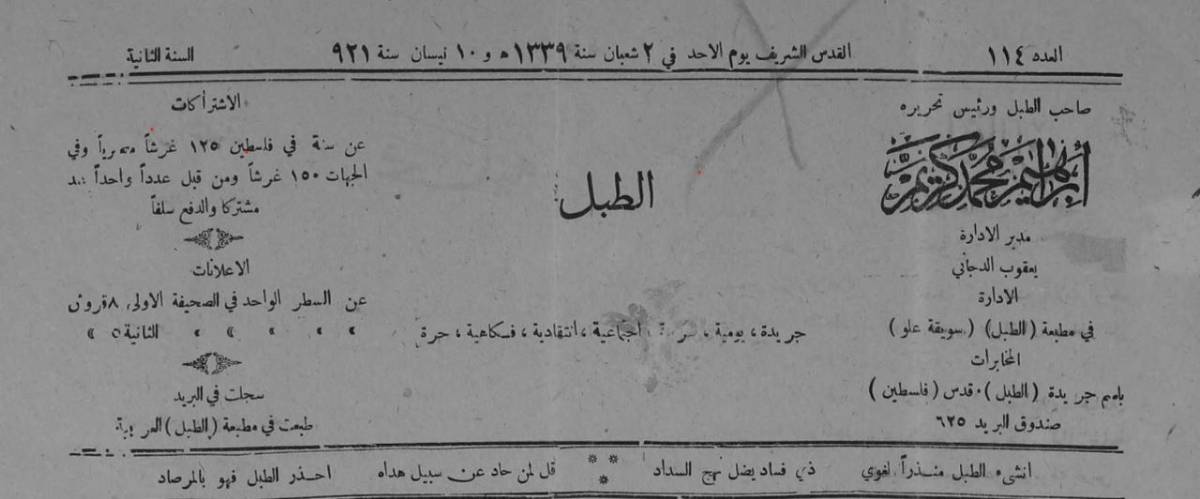 العدد ١١٤
القدس الشريف يوم الاحد في ٢ شعبان سنة ١٣٣٩ه و ١٠ نيسان سنة ٩٢١
السنة الثانية
صاحب الطبل ورئيس تحريره
ابراهيم محمد كريم
مدير الادارة
يعقوب الدجاني
الادارة
في مطبعة (الطبل) (سويقة علو)
المخابرات
باسم جريدة (الطبل)٠قدس (فلسطين)
صندوق البريد ٦٢٥
الطبل
جريدة ، يومية ، اجتماعية ، انتقادية ، فكاهية ، حرة
الاشتراكات
عن سنة في فلسطين ١٢٥ غرشاً مصرياً وفي
الجهات ١٥٠ غرشاً ومن قبل عدداً واحداً
مشتركا والدفع سلفاً
الاعلانات
عن السطر الواحد في الصحيفة الاولى ٨ قروش
» » » » » الثانية ٥ »
سجلت في البريد
طبعت في مطبعة (الطبل) العربية
انشىء الطبل منذراً لغوي ذي فساد يضل نهج السداد
قل لمن حاد عن سبيل هداه احذر الطبل فهو بالمرصاد